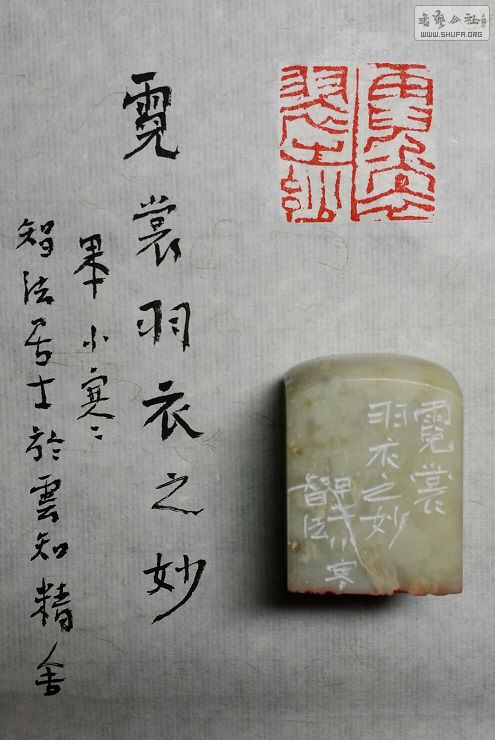 書藝公社
WWW.SHUFA.ORG
霓裳
羽衣之妙
霓裳羽衣之妙
甲午小寒
智法居士於雲知精舍
霓裳
羽衣之妙
甲午小寒
智法